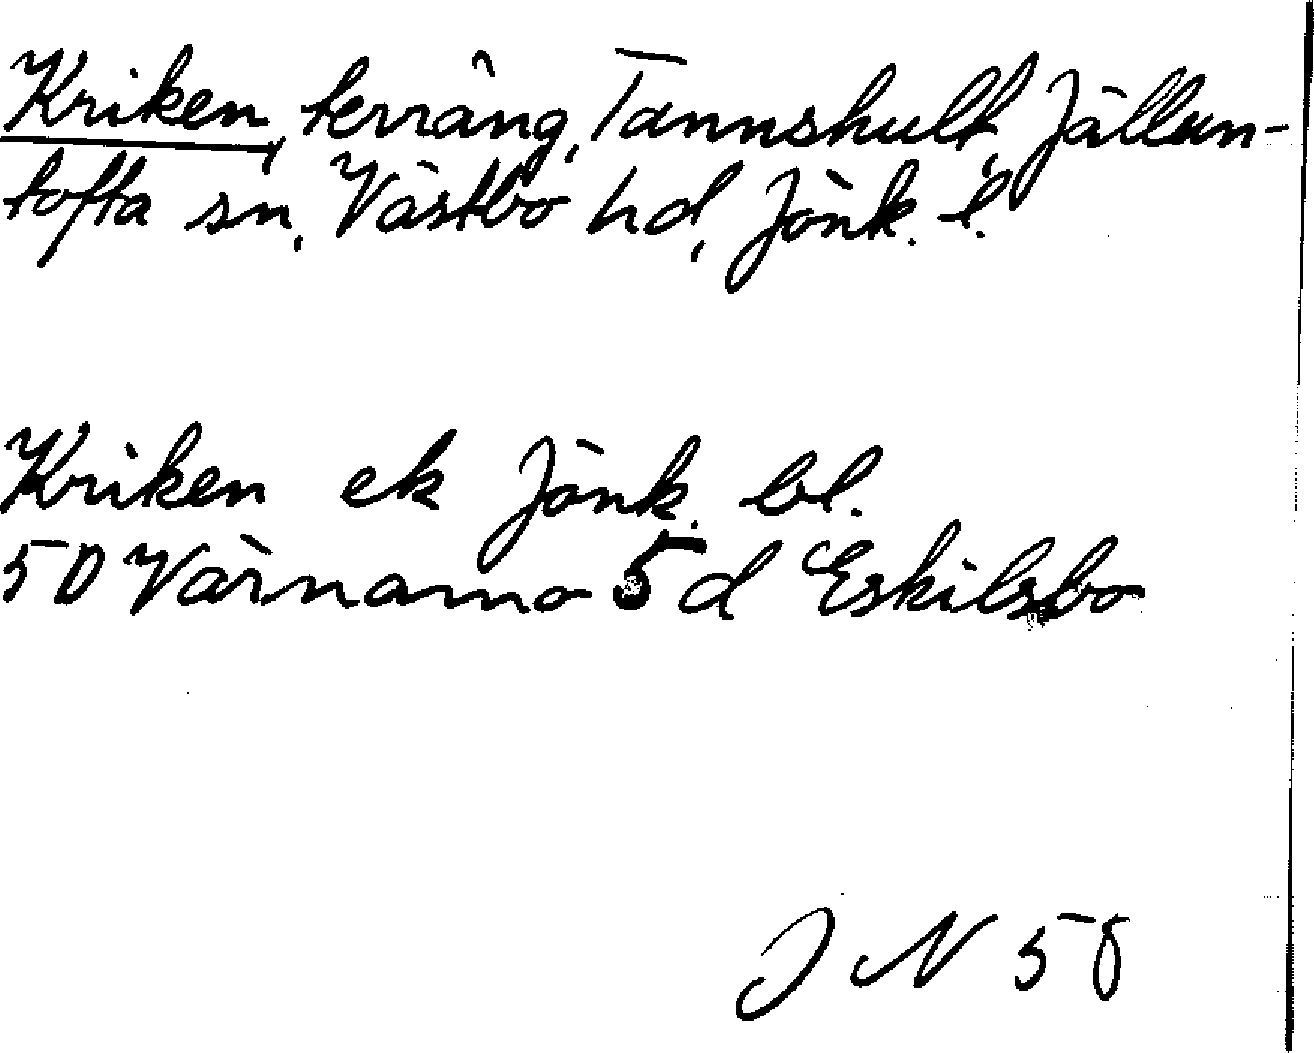 Kriken, terräng, Tannshult, Jällun-
tofta sn, Västbo hd, Jönk. l.
Kriken ek Jönk. bl.
5D Värnamo 5d Eskilsbo
J N 58